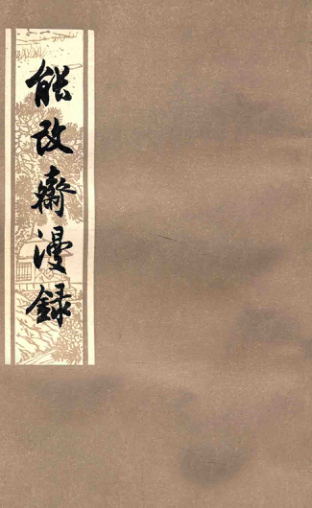 能改齋漫錄